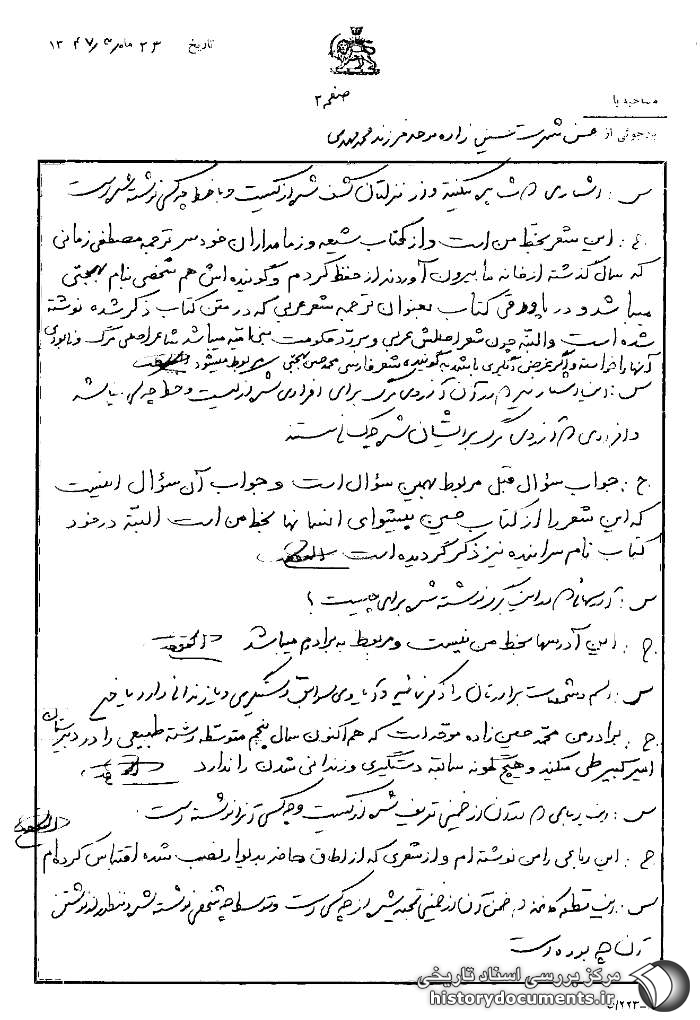 تاریخ ۲۳ ماه ۱۳۴۷
صفحه ۲
مصاحبه با
بازجوئی از حسن شهرت حسینی زاده موحد فرزند محمد مهدی
س: اشعاری که مشاهده میکنید و از منزلتان کشف شده از کیست و با خط چه کسی نوشته شده است
ج: این شعر بخط من است و از کتاب شیعه و زمامداران خودسر ترجمه مصطفی زمانی
که سال گذشته از خانه ما بیرون آوردند از حفظ کردم و گوینده اش هم شخصی بنام بهجتی
میباشد و در پاورقی کتاب بعنوان ترجمه شعر عربی که در متن کتاب ذکر شده نوشته
شده است والبته چون شعر اصلیش عربی و در مورد حکومت بنی امیه میباشد شاعر اصلی مرگ و نابودی
آنها را خواسته و اگر غرض دیگری باشد به گوینده شعر فارسی محمد حسین بهجتی مربوط میشود
س: این اشعار نیز که در آن آرزوی مرگ برای افرادی شده از کیست و خط چه کسی میباشد
و افرادی که آرزوی مرگ برایشان شده چه کسانی هستند
ج: جواب سؤال قبل مربوط بهمین سؤال است و جواب آن سؤال اینست
که این شعر را از کتاب حسین پیشوای انسانها بخط من است البته در خود
کتاب نام سراینده نیز ذکر گردیده است
س: آدرسهائی که در این برگ نوشته شده برای چیست؟
ج: این آدرسها بخط من نیست و مربوط به برادرم میباشد
س: اسم و مشخصات برادرتان را ذکر نمائید و آیا وی سوابق دستگیری و یا زندانی دارد یا خیر
ج: برادر من محمد حسین زاده موحد است که هم اکنون سال پنجم متوسطه رشته طبیعی را در دبیرستان
امیر کبیر طی میکند و هیچ گونه سابقه دستگیری و زندانی شدن را ندارد
س: این رباعی که در آن از خمینی تعریف شده از کیست و چه کسی آنرا نوشته است
ج: این رباعی را من نوشته ام و از شعری که از اطاق حاضر بدیوار نصب شده اقتباس کرده ام
س: این قطعه که در ضمن آن از خمینی تمجید شده از چه کسی است و توسط چه شخصی نوشته شده و منظور از نوشتن
آن چه بوده است
مرکز بررسی اسناد تاریخی
historydocuments.ir